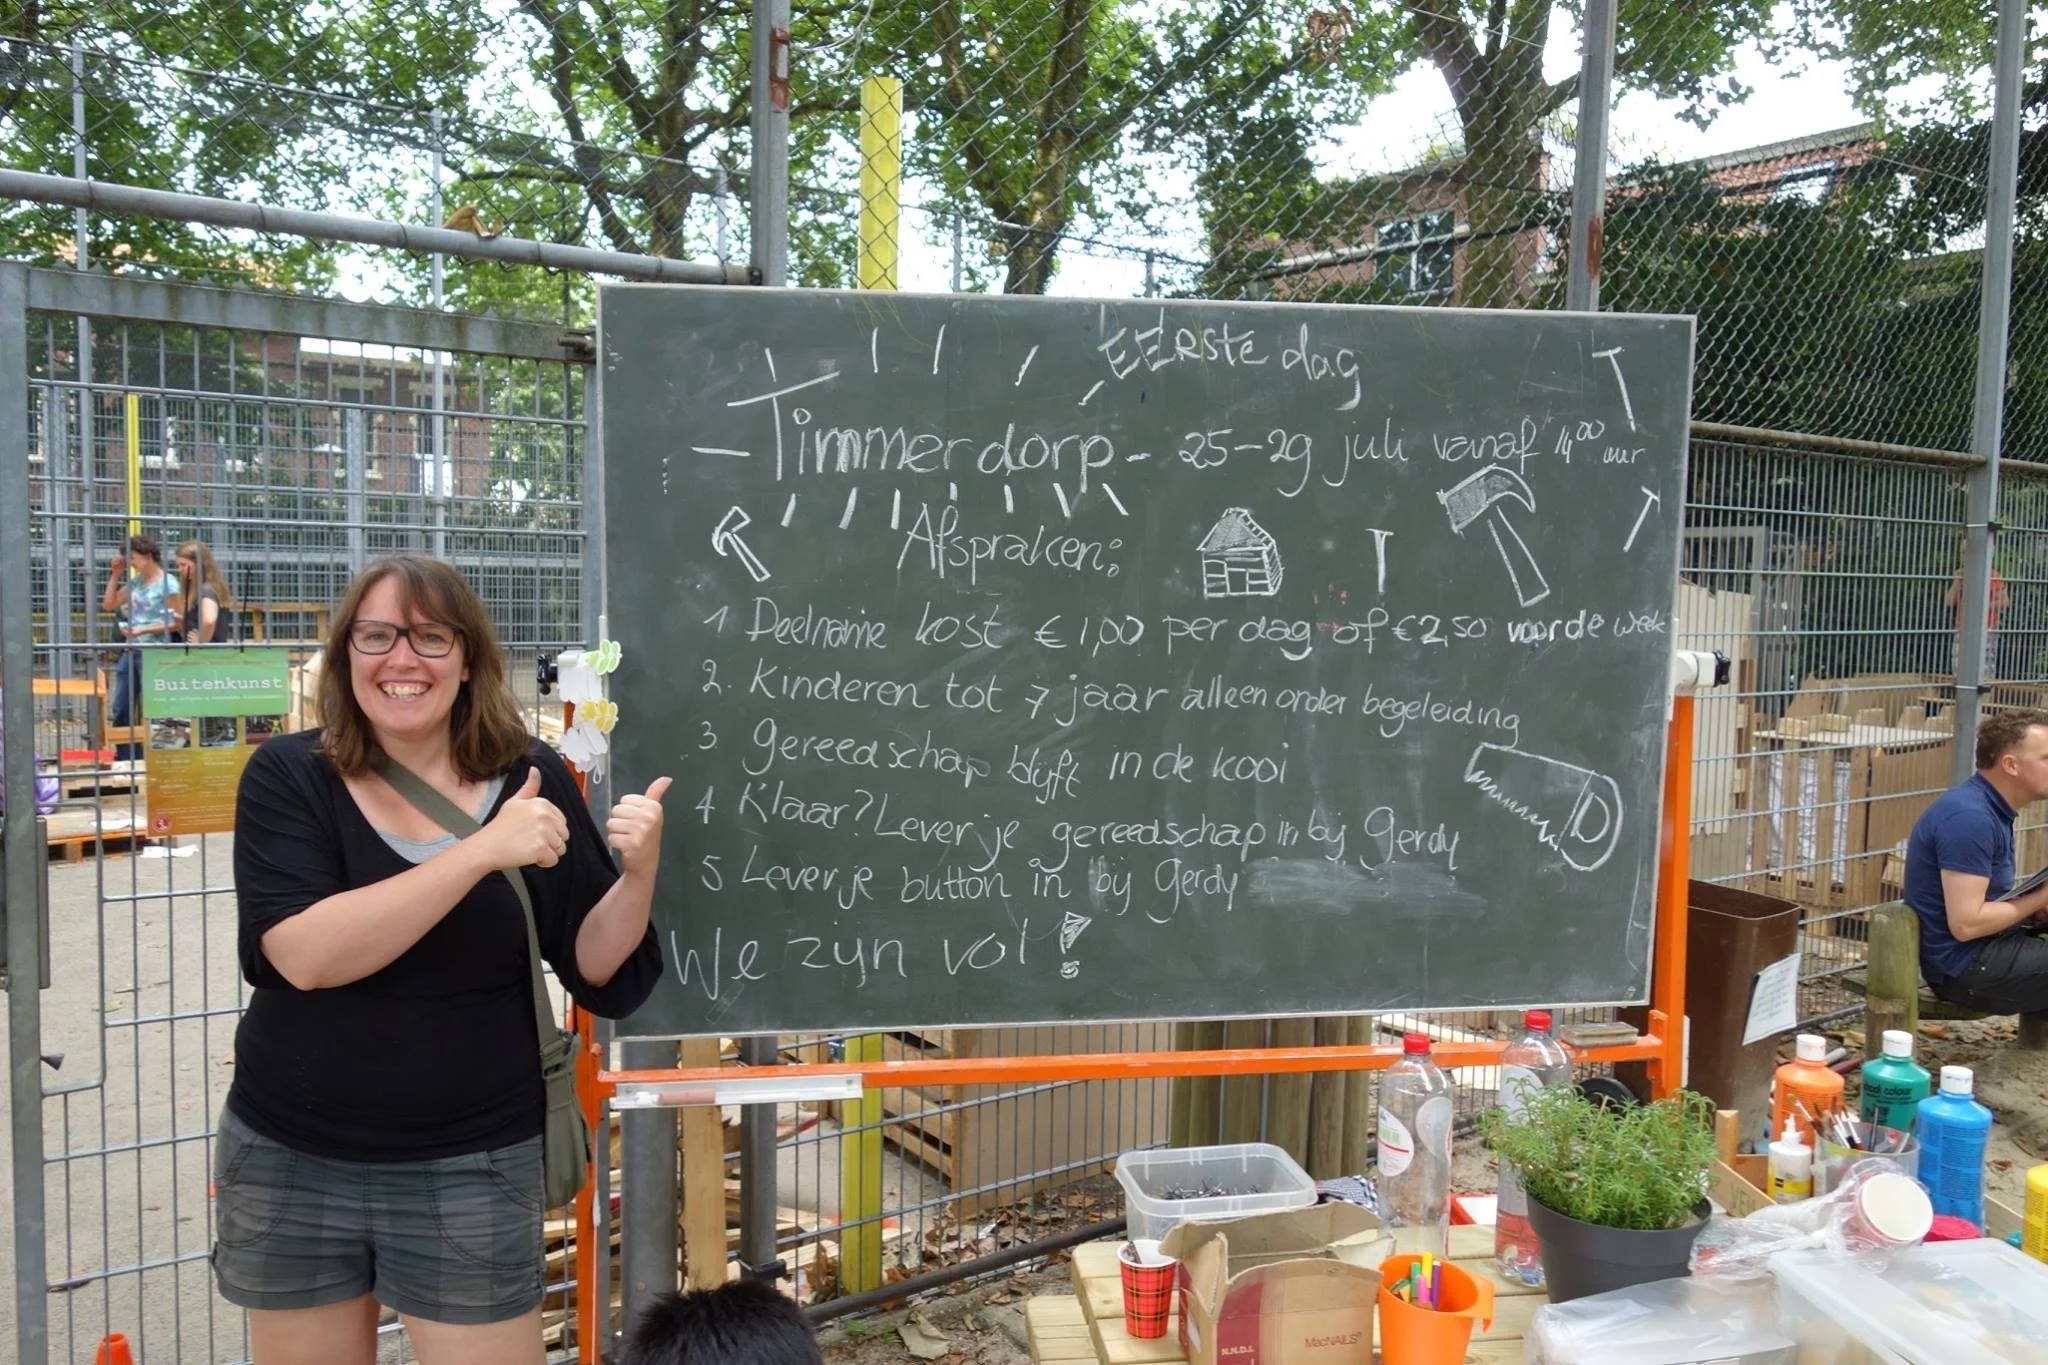 EERste dag
Timmerdorp - 25-29 juli vanaf 14⁰⁰ uur
Afspraken:
1 Deelname kost €1,00 per dag of €2,50 voor de week
2. Kinderen tot 7 jaar alleen onder begeleiding
3. gereedschap blijft in de kooi
4 Klaar? Lever je gereedschap in bij Gerdy
5 Lever je button in bij Gerdy
We zijn vol!
Buitenkunst
MacNAILS
N.N.D.I.